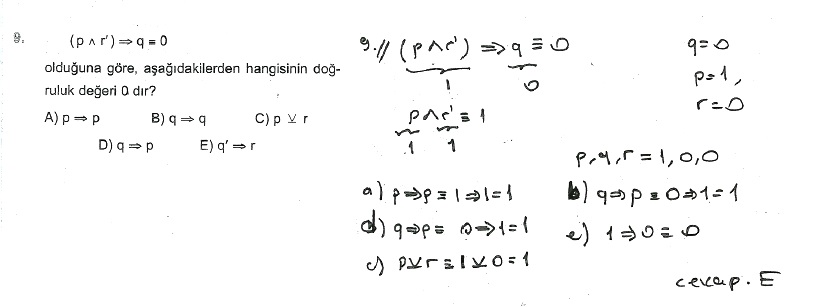 9.
(p ∧ r′) ⇒ q ≡ 0
olduğuna göre, aşağıdakilerden hangisinin doğ-
ruluk değeri 0 dır?
A) p ⇒ p B) q ⇒ q C) p ⊻ r
D) q ⇒ p E) q′ ⇒ r
9.// (p∧r′) ⇒ q ≡ 0
1 0
p∧r′ ≡ 1
1 1
q=0
p=1,
r=0
p,q,r = 1,0,0
a) p⇒p ≡ 1⇒1=1
b) q⇒p ≡ 0⇒1=1
d) q⇒p≡ 0⇒1=1
e) 1⇒0≡0
c) p⊻r≡1⊻0=1
cevap. E